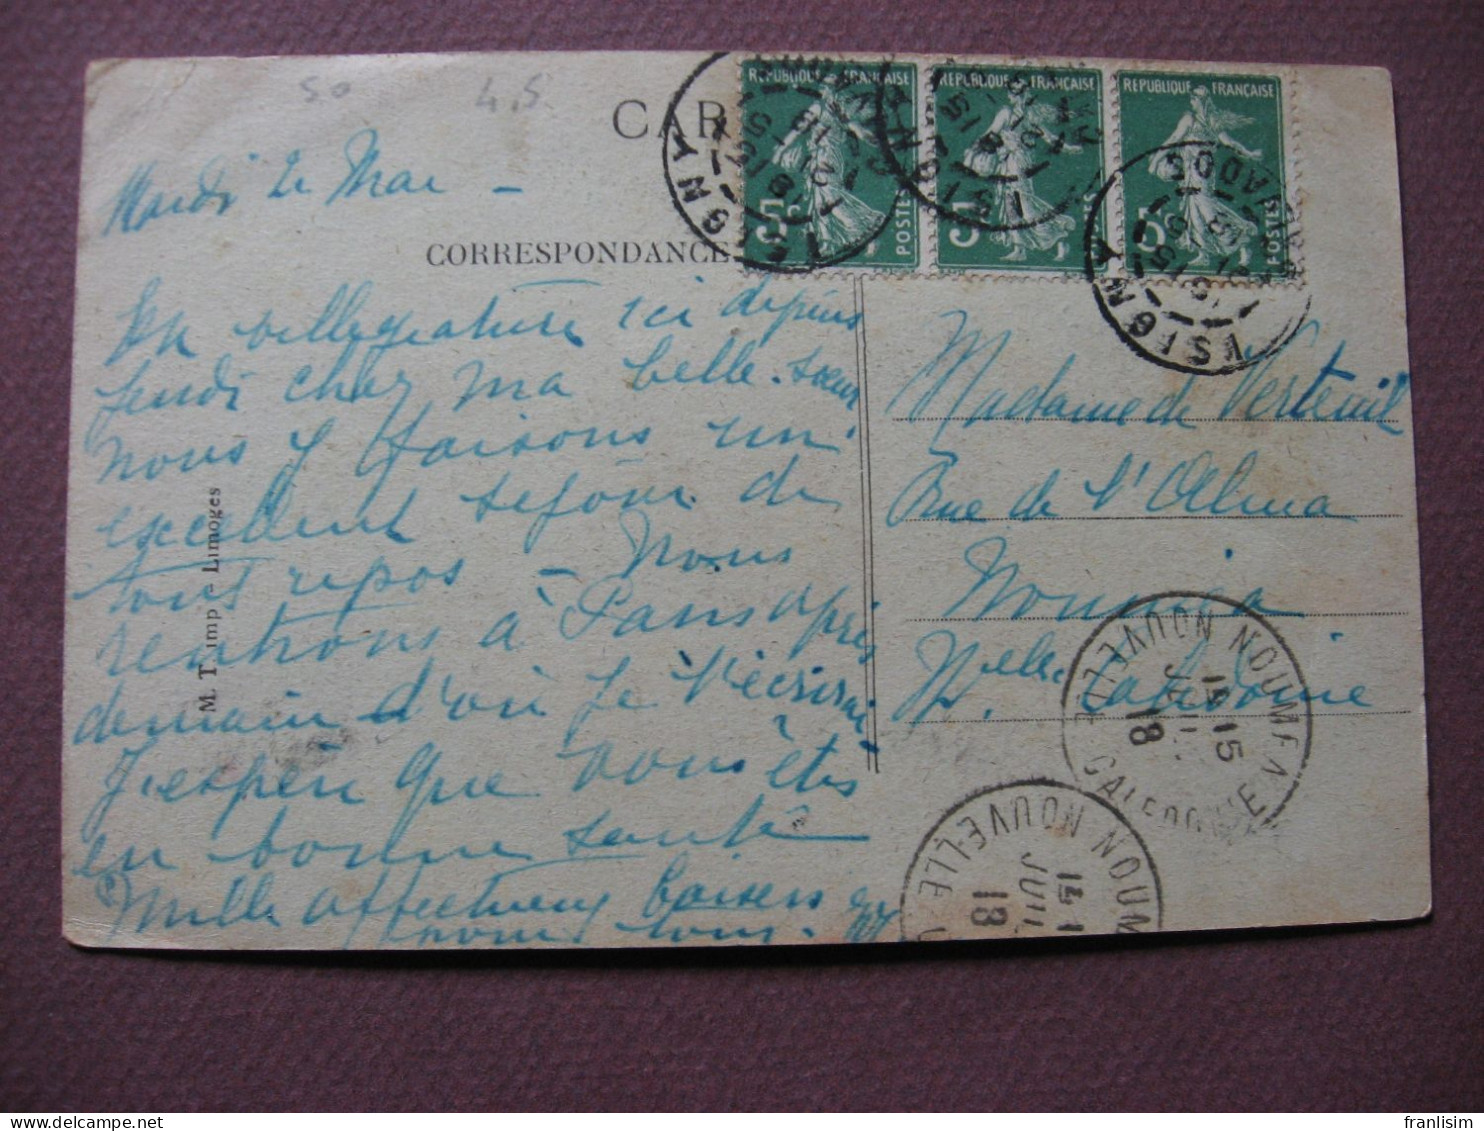 50 4,5
CAR
Mardi 21 Mai -
CORRESPONDANCE
RÉPUBLIQUE FRANÇAISE
5
POSTES
RÉPUBLIQUE FRANÇAISE
5
RÉPUBLIQUE FRANÇAISE
5
POSTES
ISIGNY
ISIGNY
ISIGNY
CALVADOS
En villegiature ici depuis
Jeudi chez ma belle-sœur
nous y faisons un
excellent sejour de
tout repos - Nous
rentrons à Paris après
demain d'où je t'écrirai
J'espère que vous êtes
en bonne santé
Mille affectueux baisers
pour tous.
M. T. imp - Limoges
Madame de Verteuil
Rue de l'Alma
Nouméa
Nelle Calédonie
NOUMEA NOUVELLE CALEDONIE
15
JUIL
18
NOUM NOUVELLE
JUIL
18
franlisim